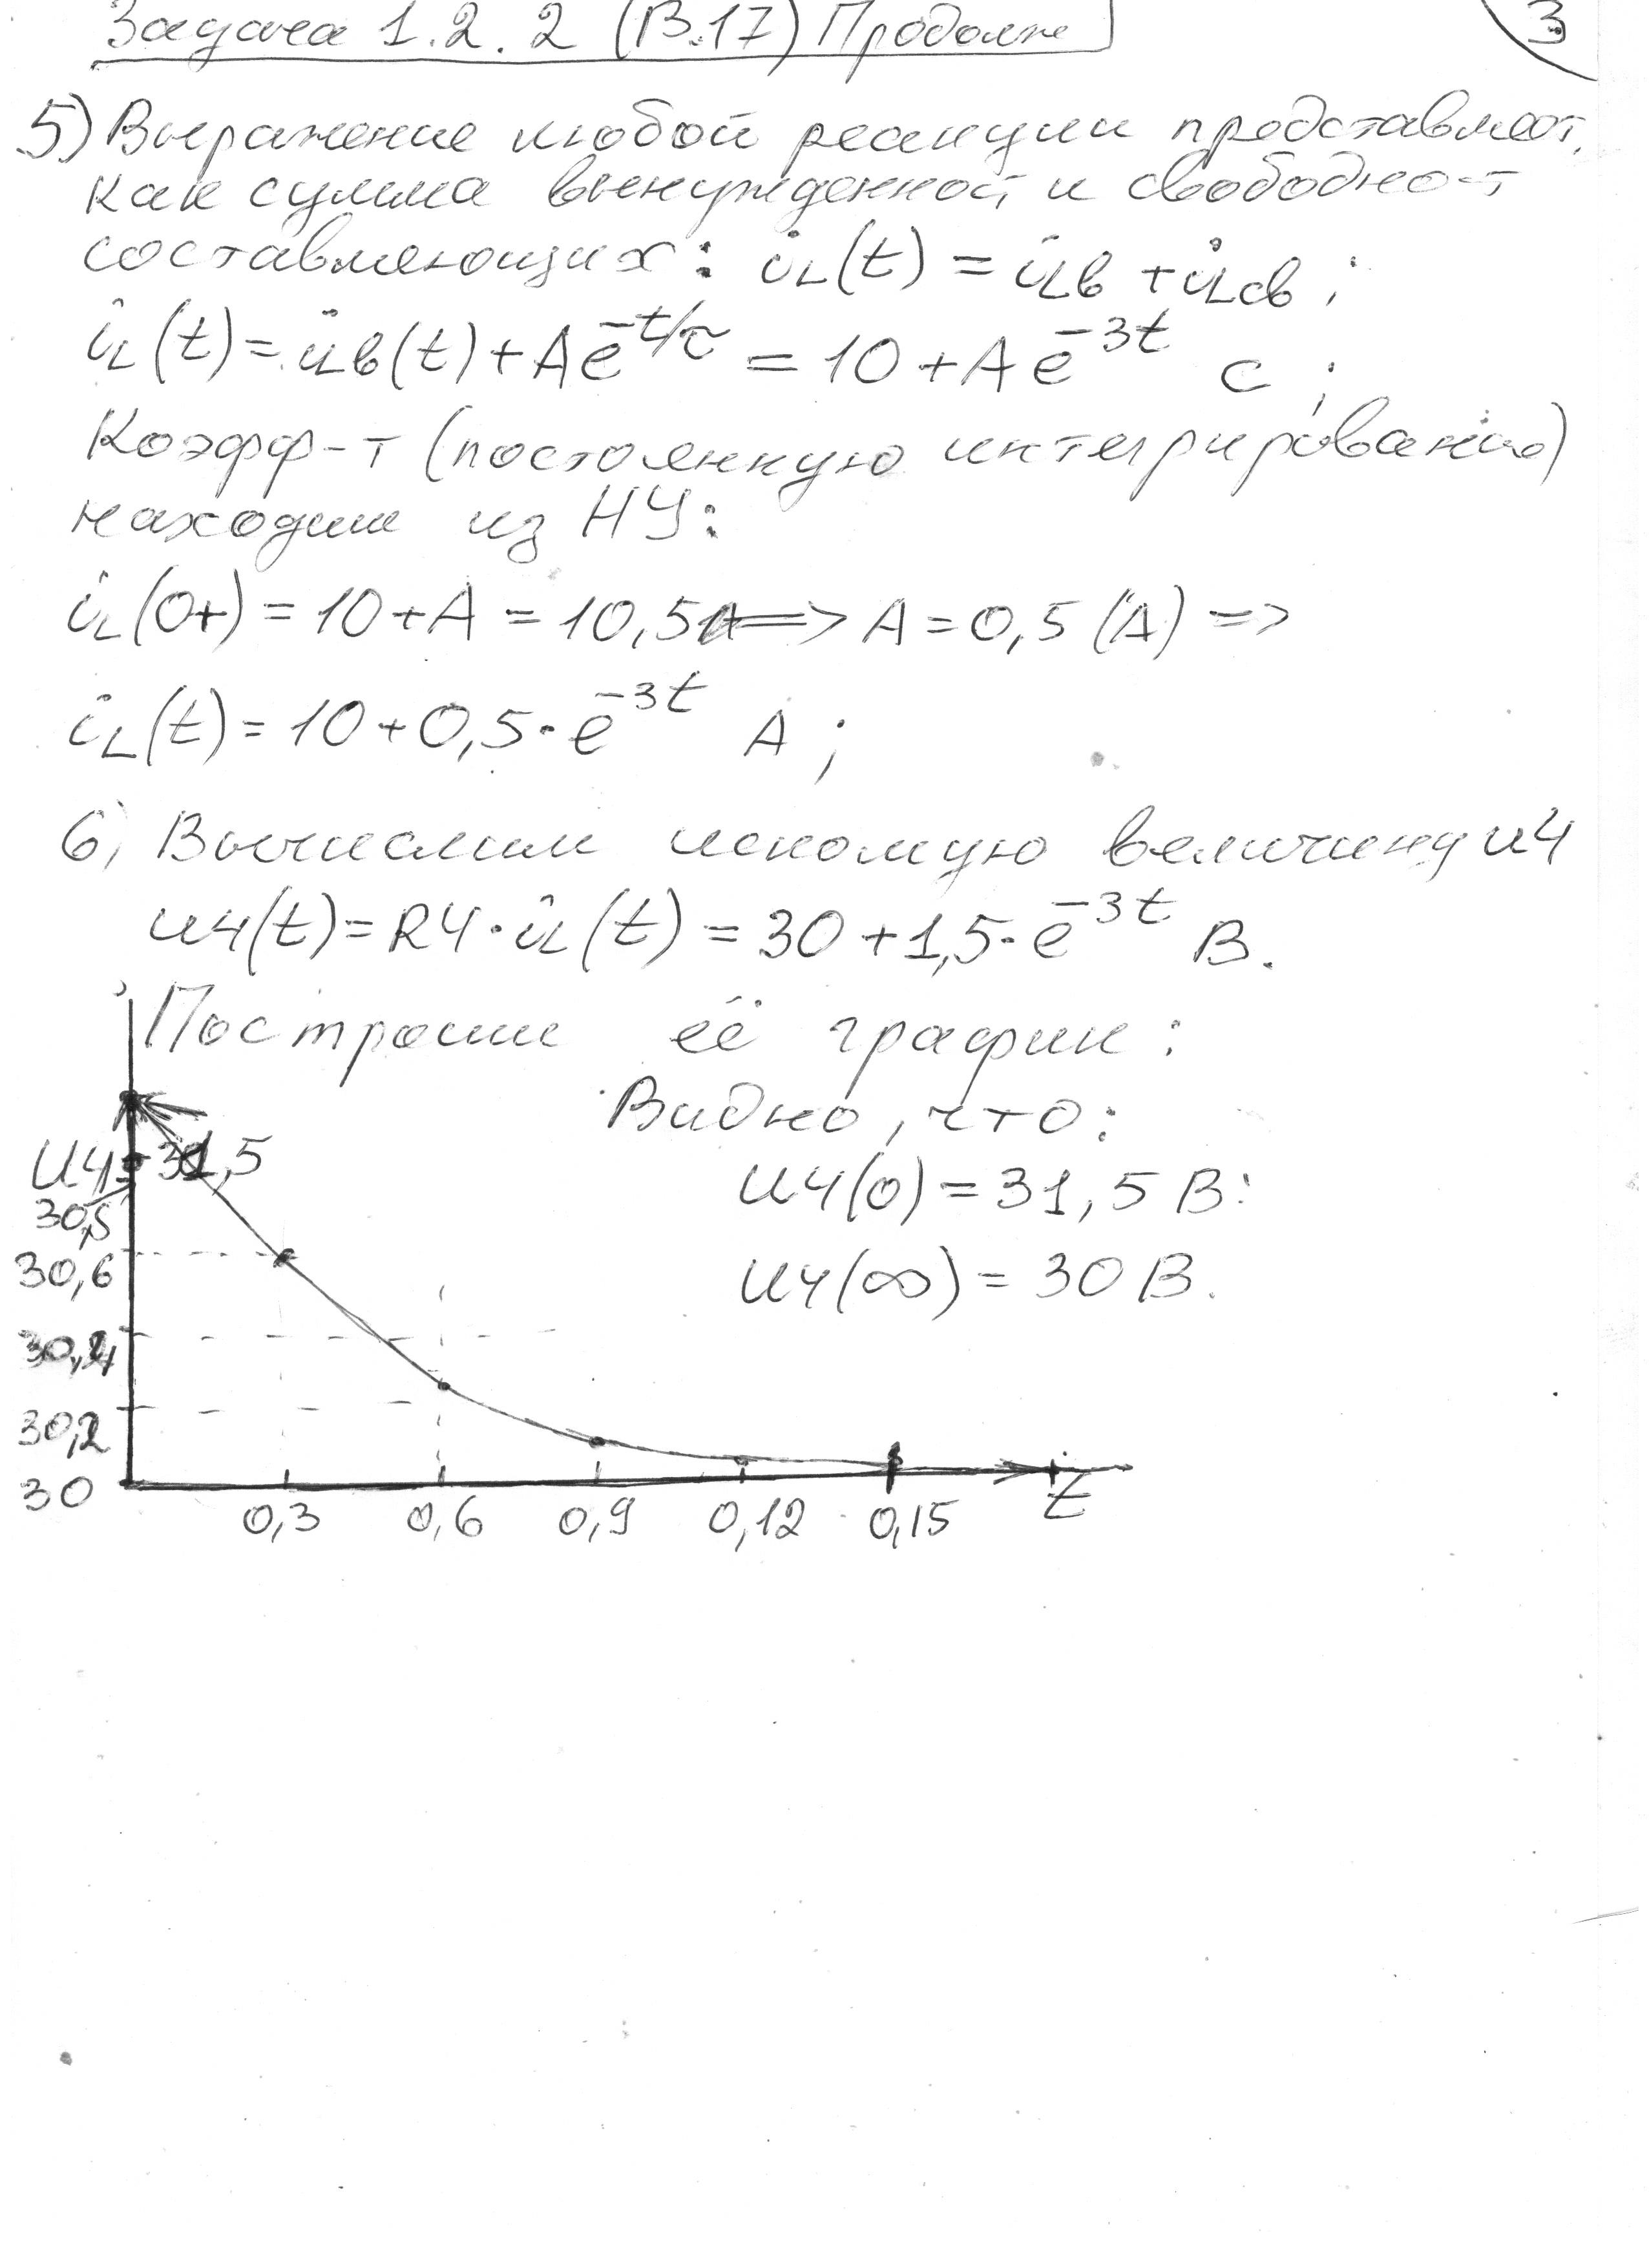 Задача 1.2.2 (В.17) Продолж
3
5) Выражение любой реакции представляют,
как сумма вынужденной и свободной
составляющих: iL(t) = iLв + iLсв ;
iL(t) = iLв(t) + Ae^-t/τ = 10 + Ae^-3t с ;
Коэфф-т (постоянную интегрирования)
находим из НУ:
iL(0+) = 10 + A = 10,5A => A = 0,5 (A) =>
iL(t) = 10 + 0,5·e^-3t A ;
6) Вычислим искомую величину u4
u4(t) = R4·iL(t) = 30 + 1,5·e^-3t В.
Построим её график:
Видно, что:
u4=31,5
u4(0) = 31,5 В:
30,6
u4(∞) = 30 В.
30,2
30
0,3 0,6 0,9 0,12 0,15 t